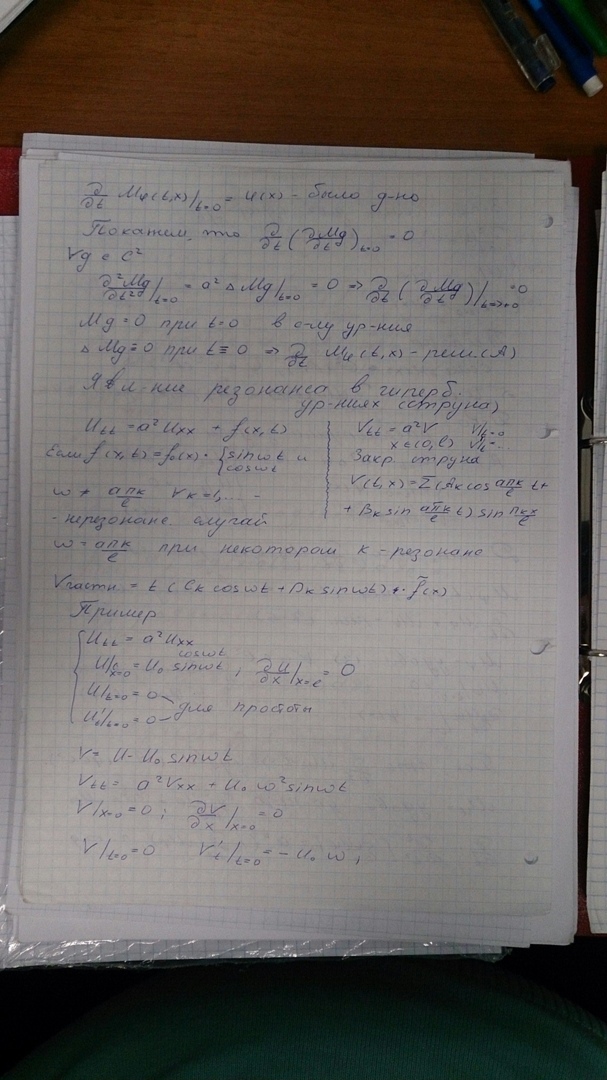 ∂/∂t Mφ(t,x)|t=0 = φ(x) - было д-но
Покажем, что ∂/∂t (∂Mg/∂t)t=0 = 0
∀g ∈ C²
∂²Mg/∂t²|t=0 = a² Δ Mg|t=0 = 0 => ∂/∂t (∂Mg/∂t)|t=>+0 = 0
Mg = 0 при t=0 в силу ур-ния
Δ Mg ≡ 0 при t ≡ 0 => ∂/∂t Mφ(t,x) - реш. (A)
Явл-ние резонанса в гиперб.
ур-ниях (струна)
Utt = a² Uxx + f(x,t)
Если f(x,t) = f₀(x)· { sin wt и
cos wt
w ≠ aπk/l ∀k=1,... -
- нерезонанс. случай
Vtt = a² V V|t=0
x∈(0,l) V|t=...
Закр. струна
V(t,x) = Σ(Ak cos aπk/l t +
+ Bk sin aπk/l t) sin πkx/l
w = aπk/l при некотором k - резонанс
Vчастн = t (Ck cos wt + Dk sin wt) · f̃(x)
Пример
Utt = a² Uxx
cos wt
U|x=0 = U₀ sin wt ; ∂U/∂x|x=l = 0
U|t=0 = 0
U't|t=0 = 0 - для простоты
V = U - U₀ sin wt
Vtt = a² Vxx + U₀ w² sin wt
V|x=0 = 0 ; ∂V/∂x|x=0 = 0
V|t=0 = 0 V't|t=0 = - U₀ w ,